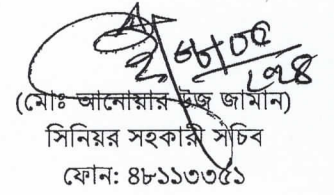 (মোঃ আনোয়ার উজ্ জামান)
সিনিয়র সহকারী সচিব
ফোন: ৪৮১১৩৩৫১